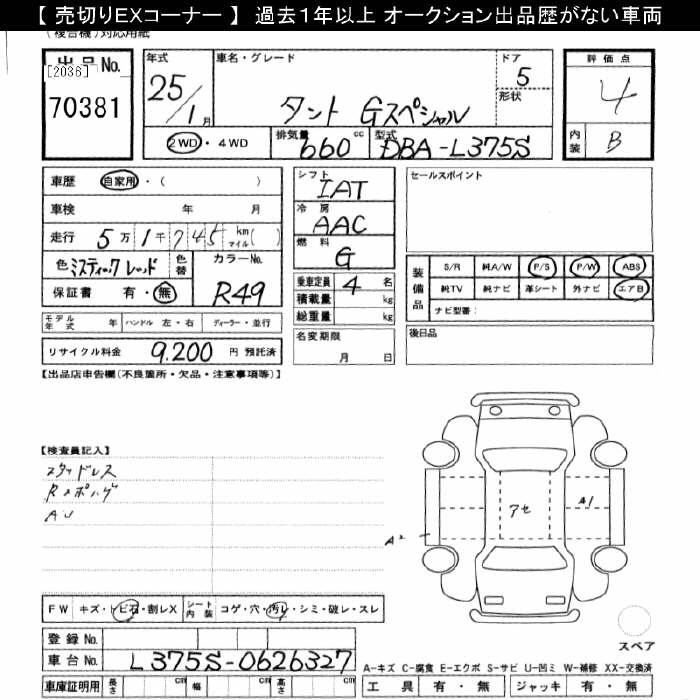 【 売切りEXコーナー 】 過去１年以上 オークション出品歴がない車両
(複合機)対応用紙
出品No.
[2036]
70381
年式
25/1月
車名・グレード
タント Gスペシャル
ドア
5
形状
2WD・4WD
排気量
660cc
型式
DBA-L375S
評価点
4
内装
B
車歴 自家用・( )
車検 年 月
走行 5万1千745km マイル( )
色 ミスティックレッド
色替
カラーNo.
R49
保証書 有・無
モデル年式 年 ハンドル 左・右 ディーラー・並行
リサイクル料金 9,200 円 預託済
シフト
IAT
冷房
AAC
燃料
G
乗車定員 4 名
積載量 kg
総重量 kg
名変期限
月 日
セールスポイント
装備品
S/R 純A/W P/S P/W ABS
純TV 純ナビ 革シート 外ナビ エアB
ナビ型番:
後日品
【出品店申告欄(不良箇所・欠品・注意事項等)】
【検査員記入】
スタッドレス
Rスポハゲ
AU
アセ
A1
A2
FW キズ・トビ石・割レX
シート内装 コゲ・穴・汚レ・シミ・破レ・スレ
登録No.
車台No. L375S-0626327
車庫証明用 長さ cm 幅 cm 高さ cm
スペア
A-キズ C-腐食 E-エクボ S-サビ U-凹ミ W-補修 XX-交換済
工具 有・無 ジャッキ 有・無